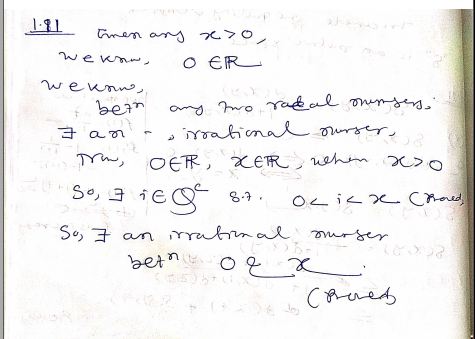 1.81 Given any x > 0,
We know, 0 ∈ ℝ
We know,
betⁿ any two real numbers,
∃ an irrational number,
Thus, 0 ∈ ℝ, x ∈ ℝ, when x > 0
So, ∃ i ∈ Qᶜ s.t. 0 < i < x (Proved)
So, ∃ an irrational number
betⁿ 0 & x.
(Proved)